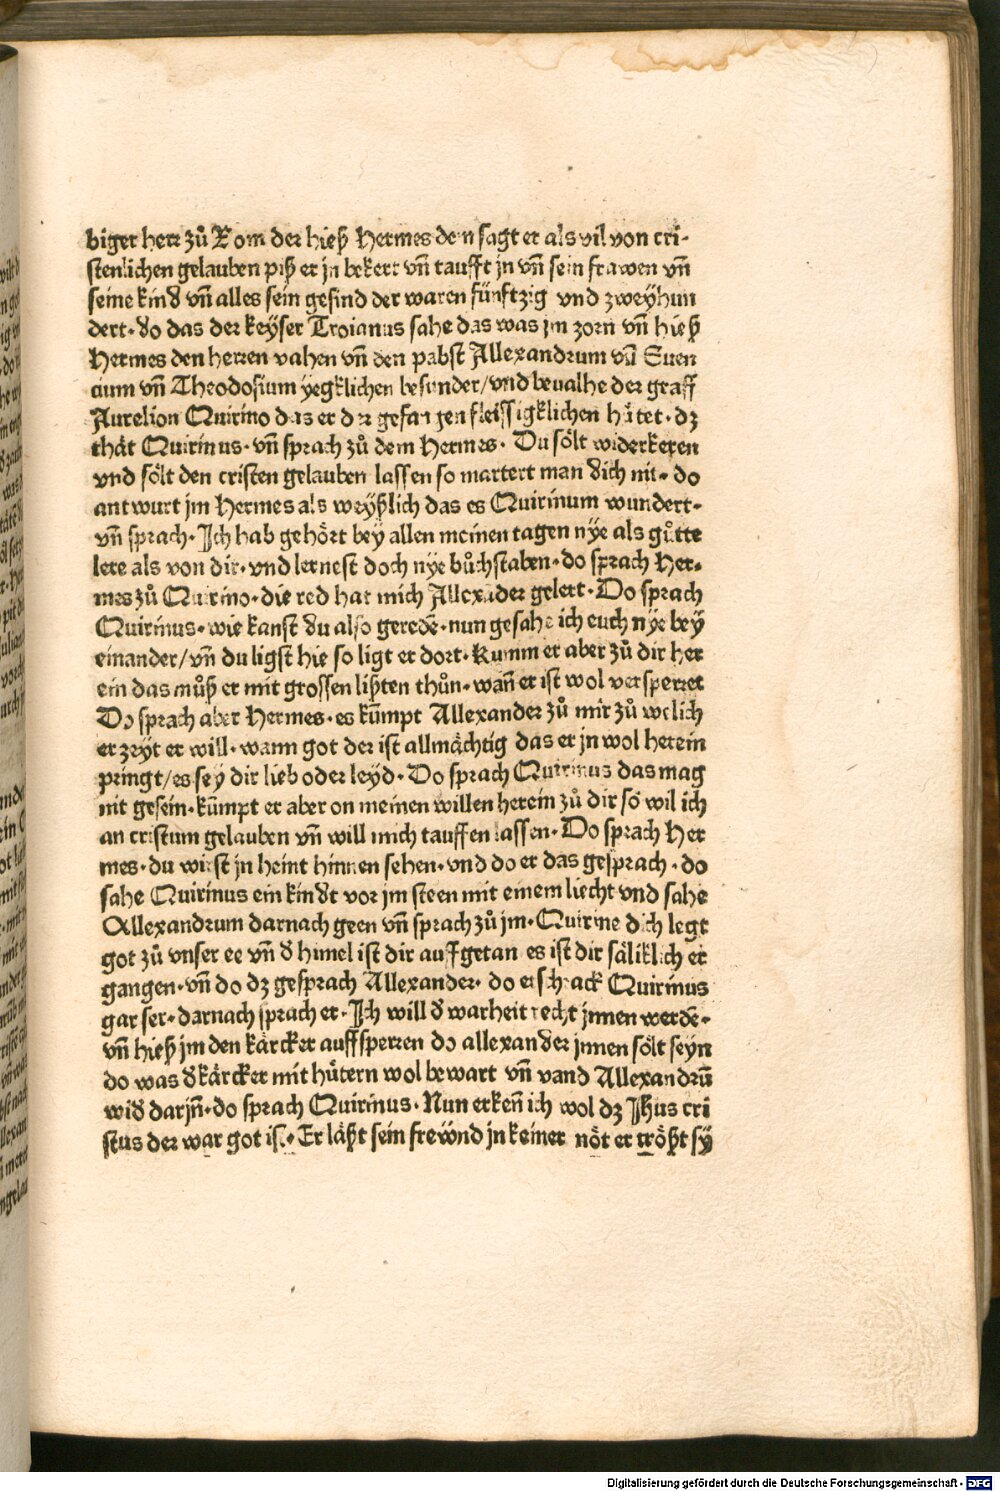 biger herr zů Rom der hieß Hermes dem sagt er als vil von cri-
stenlichen gelauben piß er jn bekert vñ taufft jn vñ sein frawen vñ
seine kind vñ alles sein gesind der waren fünftzig vnd zweÿhun
dert· do das der keÿser Troianus sahe das was jm zorn vñ hieß
Hermes den herren vahen vñ den pabst Allexandrum vñ Euen
cium vñ Theodosium yegklichen besunder/vnd beualhe der graff
Aurelion Quirino das er der gefangen fleissigklichen hůtet· dz
thåt Quirinus· vñ sprach zů dem Hermes· Du sölt widerkeren
vnd sölt den cristen gelauben lassen so martert man dich nit· do
antwurt jm Hermes als weyßlich das es Quirinum wundert·
vñ sprach· Ich hab gehört bey allen meinen tagen nÿe als gůtte
lere als von dir· vnd lernest doch nÿe bůchstaben· do sprach Her-
mes zů Quirino· die red hat mich Allexander gelert· Do sprach
Quirinus· wie kanst du also geredē· nun gesahe ich euch nÿe beÿ
einander/vñ du ligst hie so ligt er dort· Kumm er aber zů dir her
ein das můß er mit grossen lißten thůn· wañ er ist wol versperret
Do sprach aber Hermes· es kūmpt Allexander zů mir zů welich
er zeyt er will· wann got der ist allmåchtig das er jn wol herein
pringt/es sey dir lieb oder leyd· Do sprach Quirinus das mag
nit gesein· kūmpt er aber on meinen willen herein zů dir so wil ich
an cristum gelauben vñ will mich tauffen lassen· Do sprach Her
mes· du wirst jn heint hinnen sehen· vnd do er das gesprach· do
sahe Quirinus ein kindt vor jm steen mit einem liecht vnd sahe
Allexandrum darnach geen vñ sprach zů jm· Quirine dich legt
got zů vnser ee vñ d himel ist dir auffgetan es ist dir såliklich er
gangen· vñ do dz gesprach Allexander· do erschrack Quirinus
gar ser· darnach sprach er· Ich will d warheit recht jnnen werdē·
vñ hieß jm den kårcker auffsperren do allexander jnnen sölt seyn
do was d kårcker mit hütern wol bewart vñ vand Allexandrū
wid darjñ· do sprach Quirinus· Nun erkeñ ich wol dz Jhus cri
stus der war got ist· Er låßt sein freẅnd jn keiner nöt er trößt sÿ
Digitalisierung gefördert durch die Deutsche Forschungsgemeinschaft - DFG